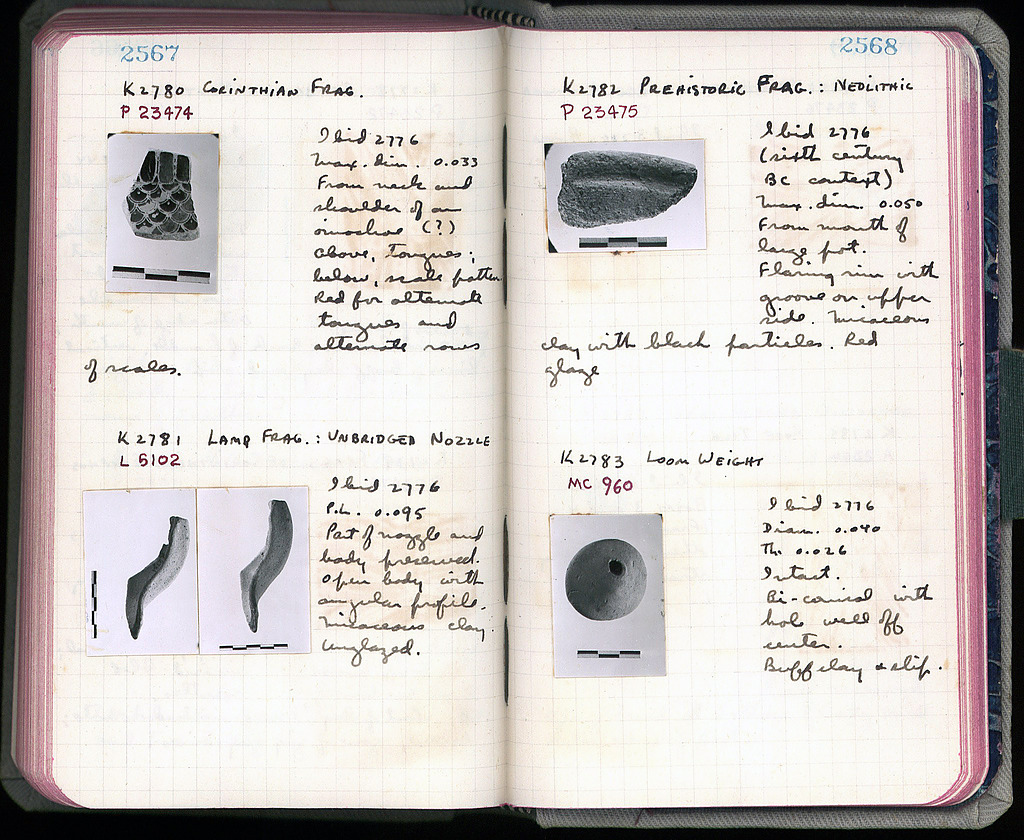 2567
K2780 CORINTHIAN FRAG.
P 23474
Ibid 2776
Max. dim. 0.033
From neck and
shoulder of an
oinochoe (?)
above, tongues;
below, scale pattern
Red for alternate
tongues and
alternate rows
of scales.
K2781 LAMP FRAG.: UNBRIDGED NOZZLE
L 5102
Ibid 2776
P.L. 0.095
Part of nozzle and
body preserved.
Open body with
angular profile.
Micaceous clay.
Unglazed.
2568
K2782 PREHISTORIC FRAG.: NEOLITHIC
P 23475
Ibid 2776
(sixth century
BC context)
Max. dim. 0.050
From mouth of
large pot.
Flaring rim with
groove on upper
side. Micaceous
clay with black particles. Red
glaze
K2783 LOOM WEIGHT
MC 960
Ibid 2776
Diam. 0.040
Th. 0.026
Intact.
Bi-conical with
hole well off
center.
Buff clay & slip.